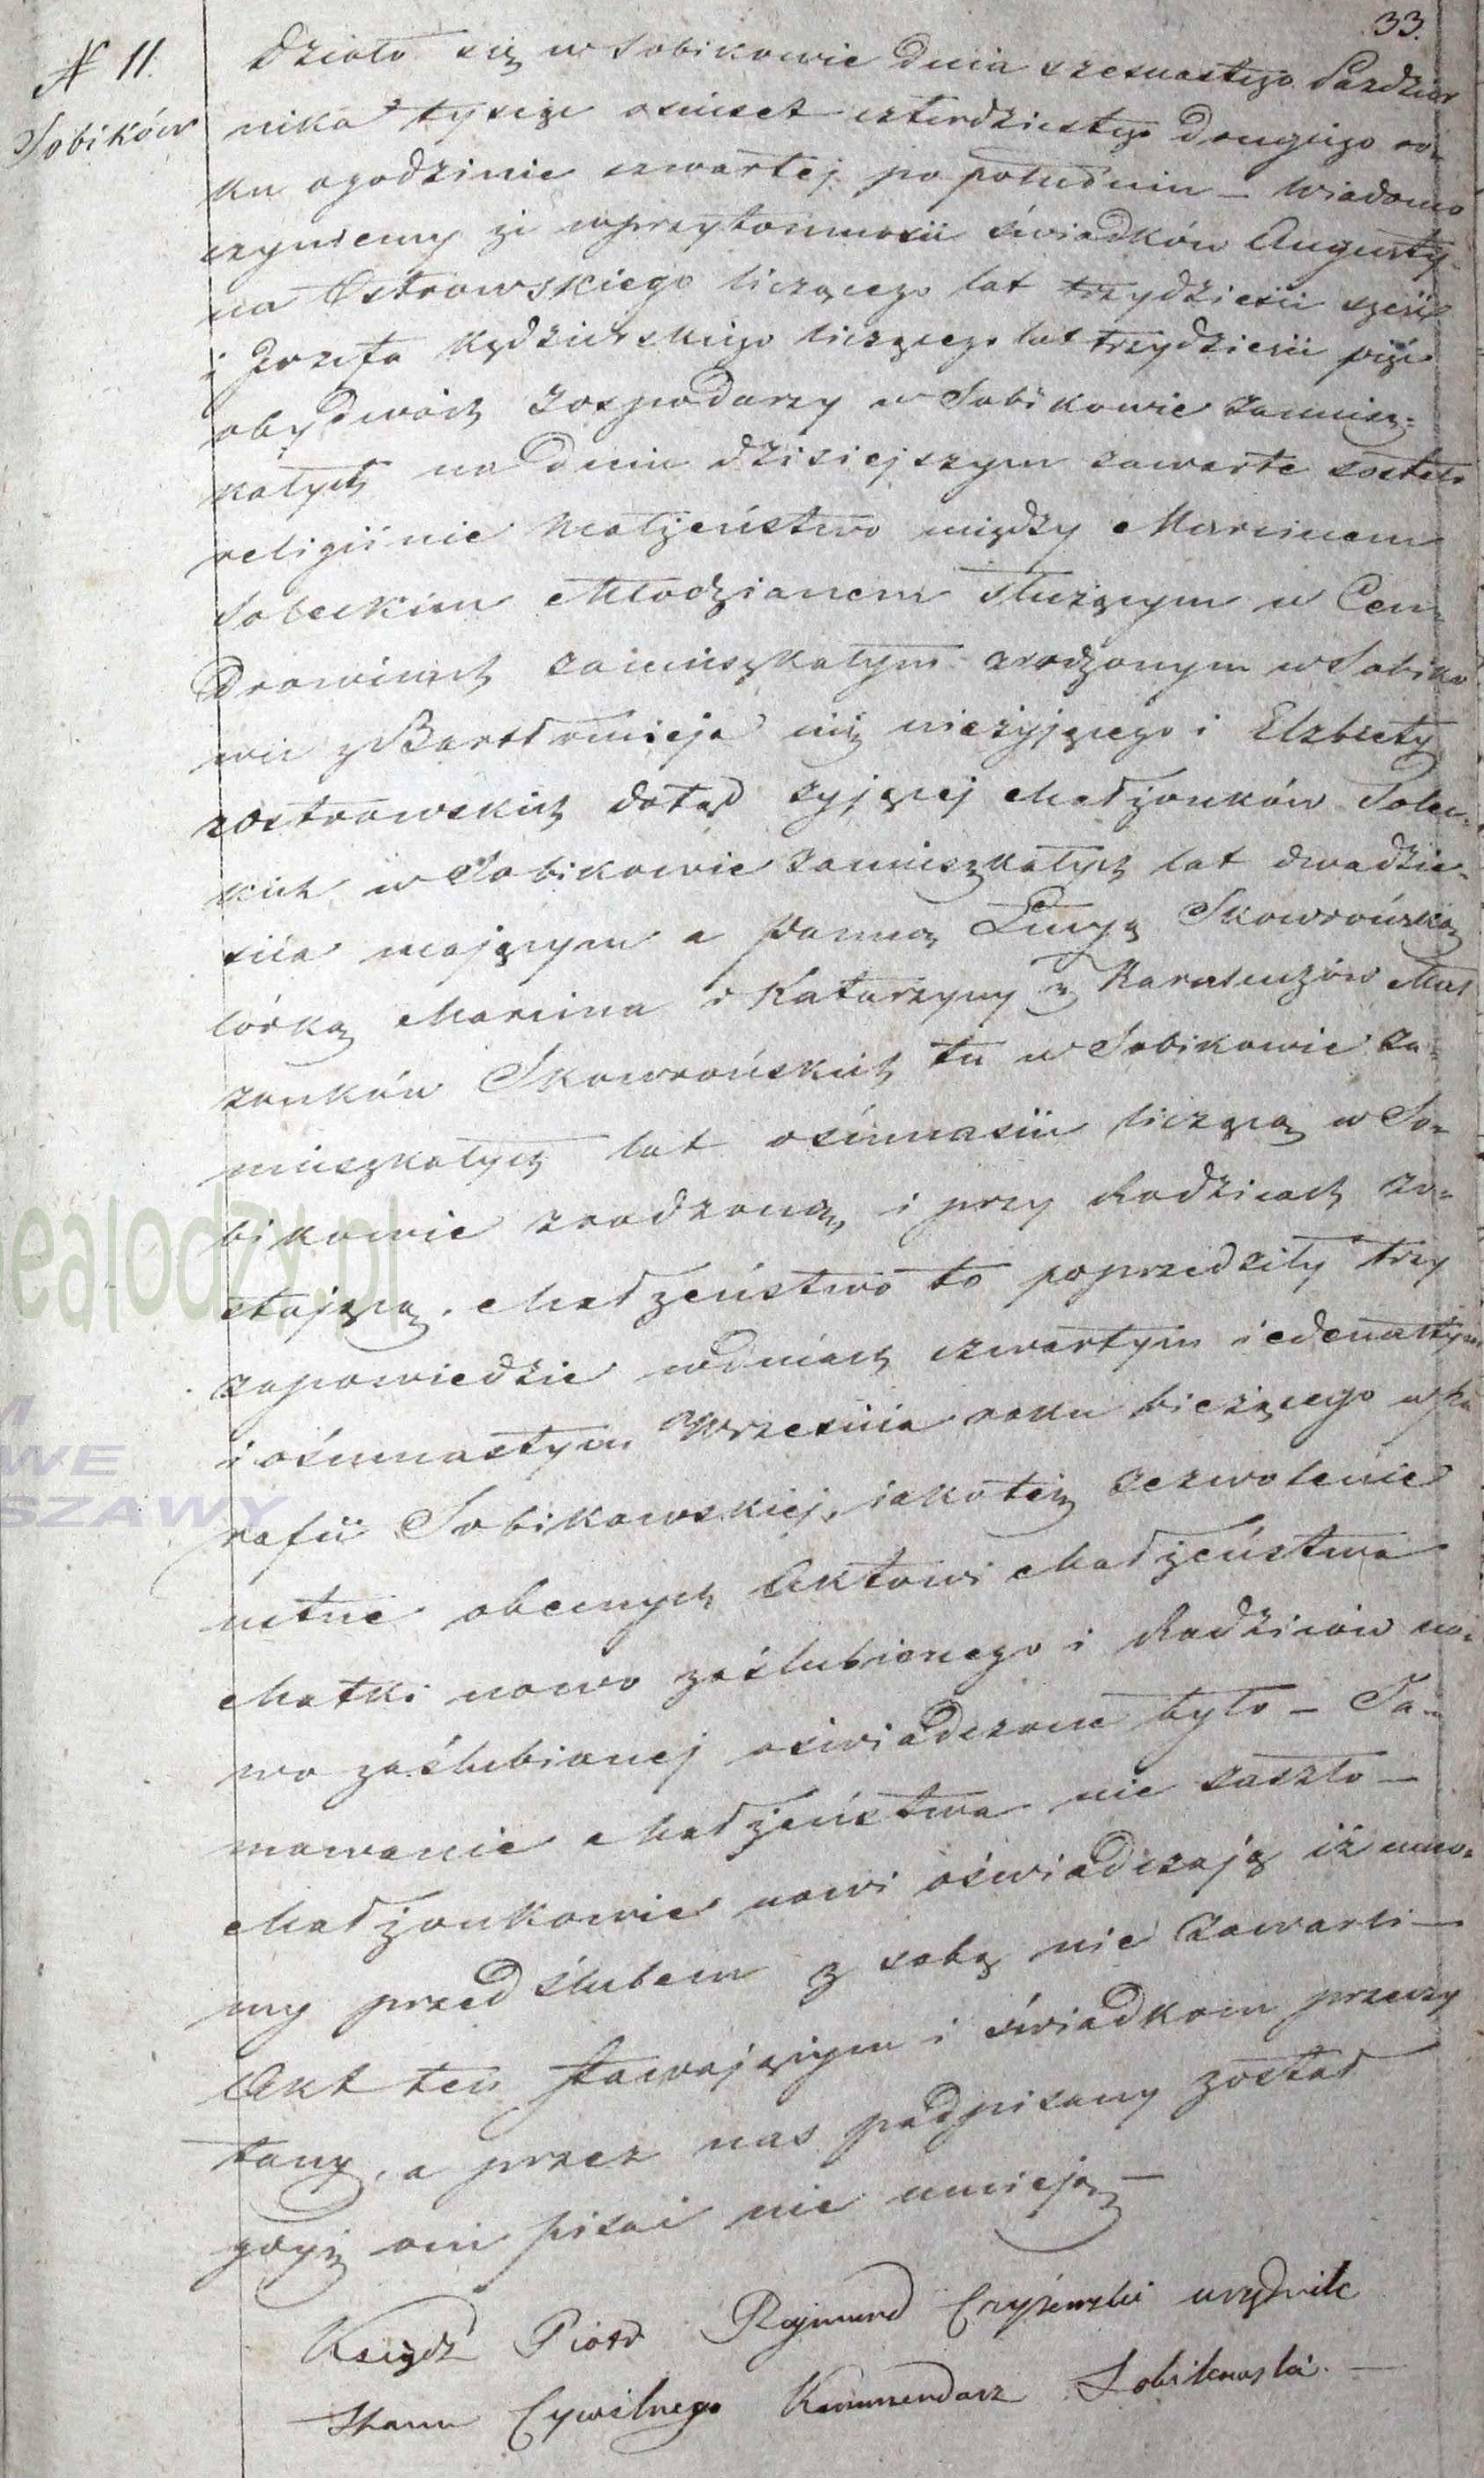 33.
N 11.
Sobików
Działo się w Sobikowie dnia szesnastego Paździer
nika tysiąc ośmset czterdziestego drugiego ro-
ku o godzinie czwartej po południu – Wiadomo
czyniemy że w przytomności świadków Augusty
na Ostrowskiego liczącego lat trzydzieści sześć
i Jozefa Kędzierskiego liczącego lat trzydzieści pięć
obydwóch Gospodarzy w Sobikowie zamiesz=
kałych na dniu dzisiejszym zawarte zostało
religiinie Małżeństwo między Marcinem
Soleckim Młodzianem służącym w Cen
drowicach zamieszkałym zrodzonym w Sobiko
wie z Bartłomieja już nieżyjącego i Elzbiety
z Ostrowskich dotąd żyjącej Małżonków Solec-
kich w Sobikowie zamieszkałych lat dwadzie-
ścia mającym a Panną Łucyą Skowrońską
córką Marcina i Katarzyny z Małż
żonków Skowrońskich tu w Sobikowie za=
mieszkałych lat ośmnaście liczącą w So-
bikowie zrodzoną, i przy Rodzicach zo=
stającą. Małżeństwo to poprzedziły trzy
zapowiedzie w dniach czwartym iedenastym
i ośmnastym Września roku bieżącego w Pa
rafii Sobikowskiej, iakoteż zezwolenie
ustne obecnych Aktowi Małżeństwa
Matki nowo zaślubionego i Rodziców no-
wo zaślubionej oświadczone było – Ta-
mowanie Małżeństwa nie zaszło –
Małżonkowie nowi oświadczają iż umo-
wy przedślubem z sobą nie zawarli –
Akt ten stawającym i świadkom przeczy
tany, a przez nas podpisany został
gdyż oni pisać nie umieją –
Ksiądz Piotr Rajmund Czyżewski urzędnik
Stanu Cywilnego Kommendarz Sobikowski. –
ealodzy.pl
M
WE
SZAWY